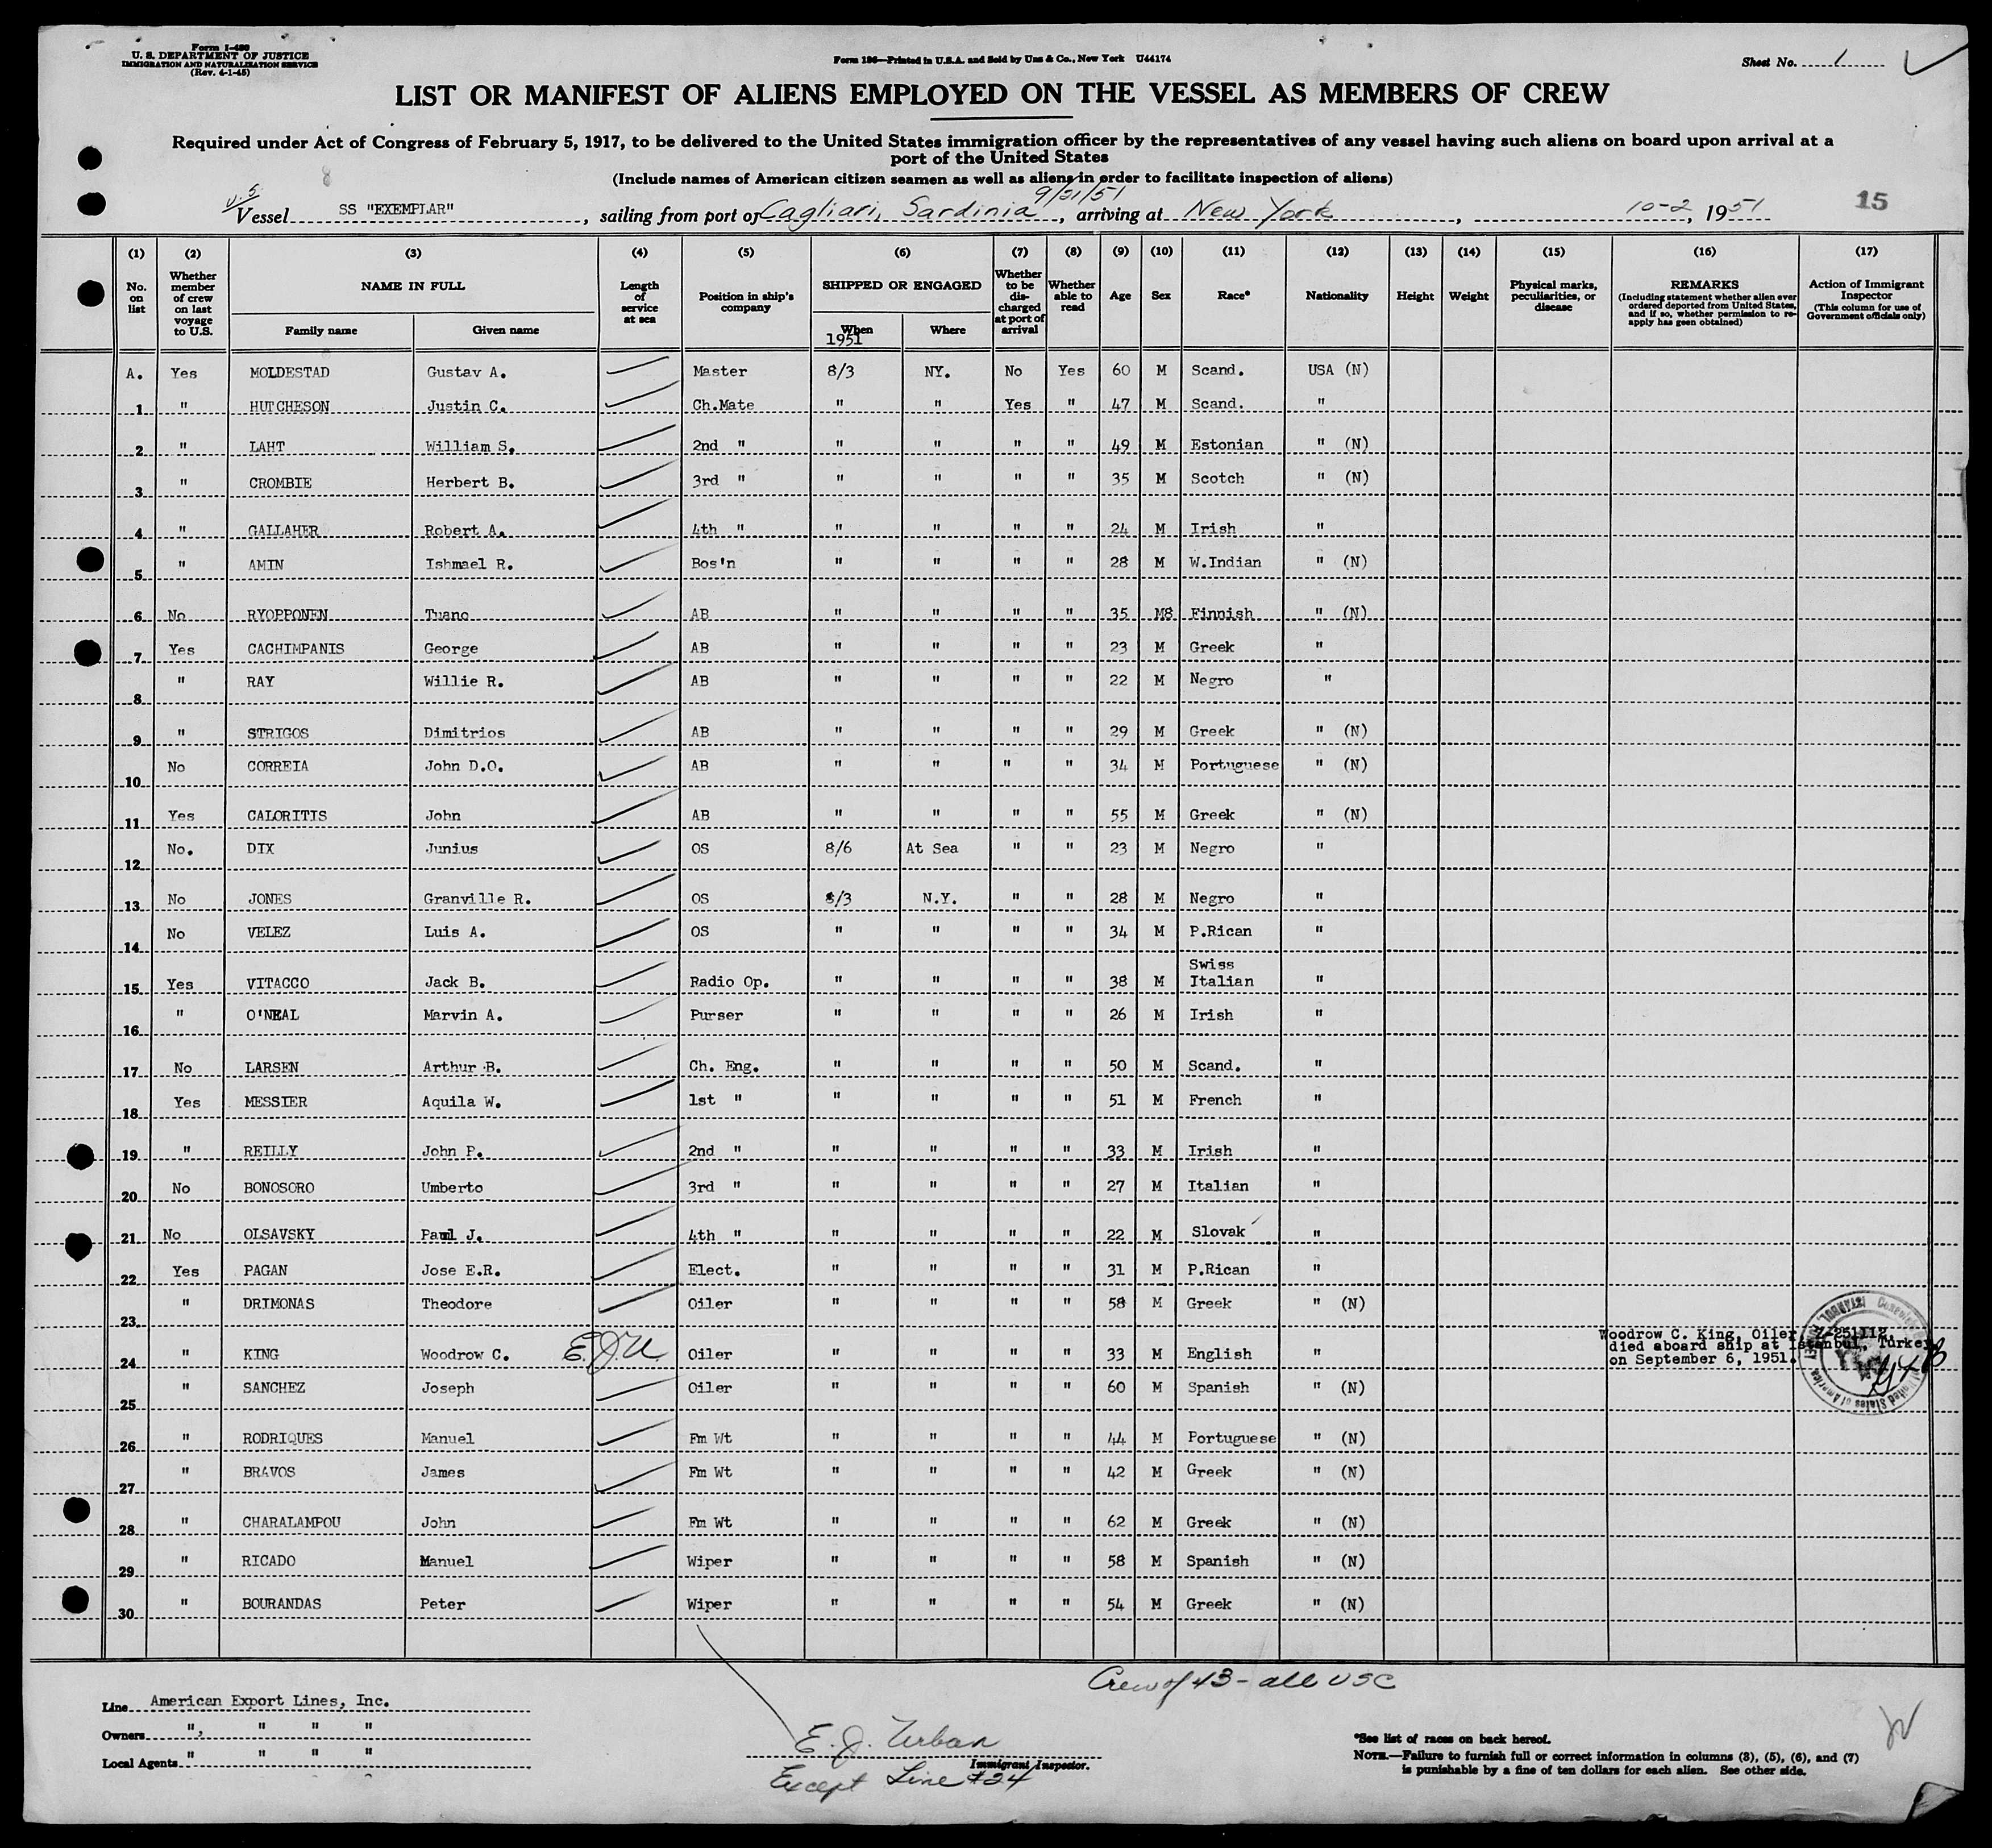 Form I-480
U. S. DEPARTMENT OF JUSTICE
IMMIGRATION AND NATURALIZATION SERVICE
(Rev. 4-1-45)
Form 136—Printed in U.S.A. and Sold by Unz & Co., New York U44174
Sheet No. 1
LIST OR MANIFEST OF ALIENS EMPLOYED ON THE VESSEL AS MEMBERS OF CREW
Required under Act of Congress of February 5, 1917, to be delivered to the United States immigration officer by the representatives of any vessel having such aliens on board upon arrival at a
port of the United States
(Include names of American citizen seamen as well as aliens in order to facilitate inspection of aliens)
8
U.S. Vessel SS "EXEMPLAR", sailing from port of Cagliari, Sardinia 9/21/51, arriving at New York, 10-2, 1951
15
(1) (2) (3) (4) (5) (6) (7) (8) (9) (10) (11) (12) (13) (14) (15) (16) (17)
No. on list
Whether member of crew on last voyage to U.S.
NAME IN FULL
Family name Given name
Length of service at sea
Position in ship's company
SHIPPED OR ENGAGED
When Where
1951
Whether to be discharged at port of arrival
Whether able to read
Age
Sex
Race*
Nationality
Height
Weight
Physical marks, peculiarities, or disease
REMARKS
(Including statement whether alien ever ordered deported from United States, and if so, whether permission to re-apply has geen obtained)
Action of Immigrant Inspector
(This column for use of Government officials only)
A. Yes MOLDESTAD Gustav A. Master 8/3 NY. No Yes 60 M Scand. USA (N)
1 " HUTCHESON Justin C. Ch.Mate " " Yes " 47 M Scand. "
2 " LAHT William S. 2nd " " " " " 49 M Estonian " (N)
3 " CROMBIE Herbert B. 3rd " " " " " 35 M Scotch " (N)
4 " GALLAHER Robert A. 4th " " " " " 24 M Irish "
5 " AMIN Ishmael R. Bos'n " " " " 28 M W.Indian " (N)
6 No RYOPPONEN Tuano AB " " " " 35 M8 Finnish " (N)
7 Yes CACHIMPANIS George AB " " " " 23 M Greek "
8 " RAY Willie R. AB " " " " 22 M Negro "
9 " STRIGOS Dimitrios AB " " " " 29 M Greek " (N)
10 No CORREIA John D.O. AB " " " " 34 M Portuguese " (N)
11 Yes CALORITIS John AB " " " " 55 M Greek " (N)
12 No. DIX Junius OS 8/6 At Sea " " 23 M Negro "
13 No JONES Granville R. OS 8/3 N.Y. " " 28 M Negro "
14 No VELEZ Luis A. OS " " " " 34 M P.Rican "
15 Yes VITACCO Jack B. Radio Op. " " " " 38 M Swiss Italian "
16 " O'NEAL Marvin A. Purser " " " " 26 M Irish "
17 No LARSEN Arthur B. Ch. Eng. " " " " 50 M Scand. "
18 Yes MESSIER Aquila W. 1st " " " " " 51 M French "
19 " REILLY John P. 2nd " " " " " 33 M Irish "
20 No BONOSORO Umberto 3rd " " " " " 27 M Italian "
21 No OLSAVSKY Paul J. 4th " " " " " 22 M Slovak "
22 Yes PAGAN Jose E.R. Elect. " " " " 31 M P.Rican "
23 " DRIMONAS Theodore Oiler " " " " 58 M Greek " (N)
24 " KING Woodrow C. E.J.U. Oiler " " " " 33 M English "
Woodrow C. King, Oiler, Z-251112,
died aboard ship at Istanbul, Turkey
on September 6, 1951.
25 " SANCHEZ Joseph Oiler " " " " 60 M Spanish " (N)
26 " RODRIQUES Manuel Fm Wt " " " " 44 M Portuguese " (N)
27 " BRAVOS James Fm Wt " " " " 42 M Greek " (N)
28 " CHARALAMPOU John Fm Wt " " " " 62 M Greek " (N)
29 " RICADO Manuel Wiper " " " " 58 M Spanish " (N)
30 " BOURANDAS Peter Wiper " " " " 54 M Greek " (N)
Crew of 43 - all USC
Line American Export Lines, Inc.
Owners ", " " "
Local Agents " " " "
E. J. Urban
Immigrant Inspector.
Except Line #24
*See list of races on back hereof.
NOTE.—Failure to furnish full or correct information in columns (3), (5), (6), and (7)
is punishable by a fine of ten dollars for each alien. See other side.